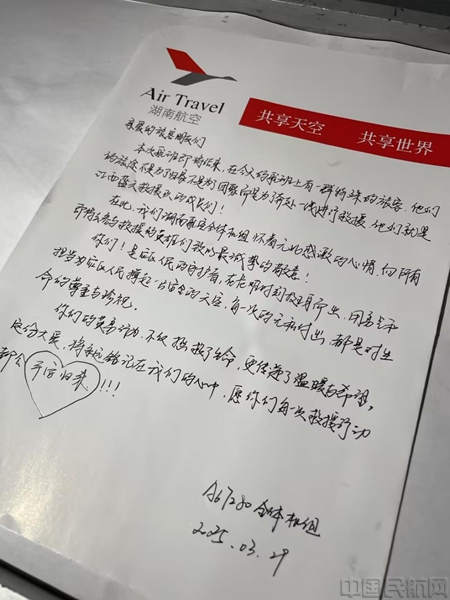 Air Travel
湖南航空
共享天空 共享世界
亲爱的旅客朋友们
本次航班即将结束,在今天的航班上有一群特殊的旅客,他们
的旅途不是为了归家不是为了团聚而是为了奔赴一线进行救援,他们就是
江西蓝天救援队的战友们!
在此,我们湖南航空全体机组怀着无比感激的心情,向所有
救援的英雄们致以最诚挚的敬意!
你们!是人民的守护者,在危难时刻挺身而出,用勇气和
担当为人民撑起一片安全的天空,每一次的无私付出,都是对生
命的尊重与珍视。
你们的英勇行为,不仅拯救了生命,更传递了温暖与希望,
大爱,将永远铭记在我们的心中,愿你们每一次救援行动
都会平安归来!!!
A67280全体机组
2025.03.29
中国民航网